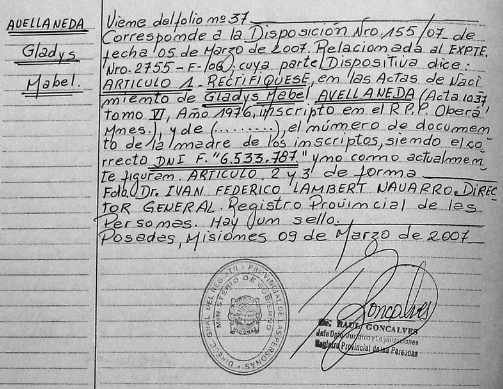 AVELLANEDA
Gladys
Mabel.
Viene del folio nº 37
Corresponde a la Disposición Nro. 155/07 de
fecha 05 de Marzo de 2007. Relacionada al EXPTE.
Nro. 2755-F-/06), cuya parte Dispositiva dice:
ARTICULO 1 RECTIFIQUESE, en las Actas de Naci
miento de Gladys Mabel AVELLANEDA (Acta 1037
tomo VI, Año 1976, inscripto en el R.P.P. Oberá
Mnes.), y de (.........), el número de documen
to de la madre de los inscriptos, siendo el co
rrecto DNI F. "6.533.787." y no como actualmen
te figuran. ARTICULO. 2 y 3 de forma
Fdo. Dr. IVAN FEDERICO LAMBERT NAVARRO. DIREC
TOR GENERAL. Registro Provincial de las
Personas. Hay un sello.
Posadas, Misiones 09 de Marzo de 2007
DIRECC. GRAL DEL REGISTRO PROVINCIAL DE LAS PERSONAS
MINISTERIO DE GOBIERNO
Goncalves
Dr. RAUL GONCALVES
Jefe Dpto. Jurídico y Legalizaciones
Registro Provincial de las Personas